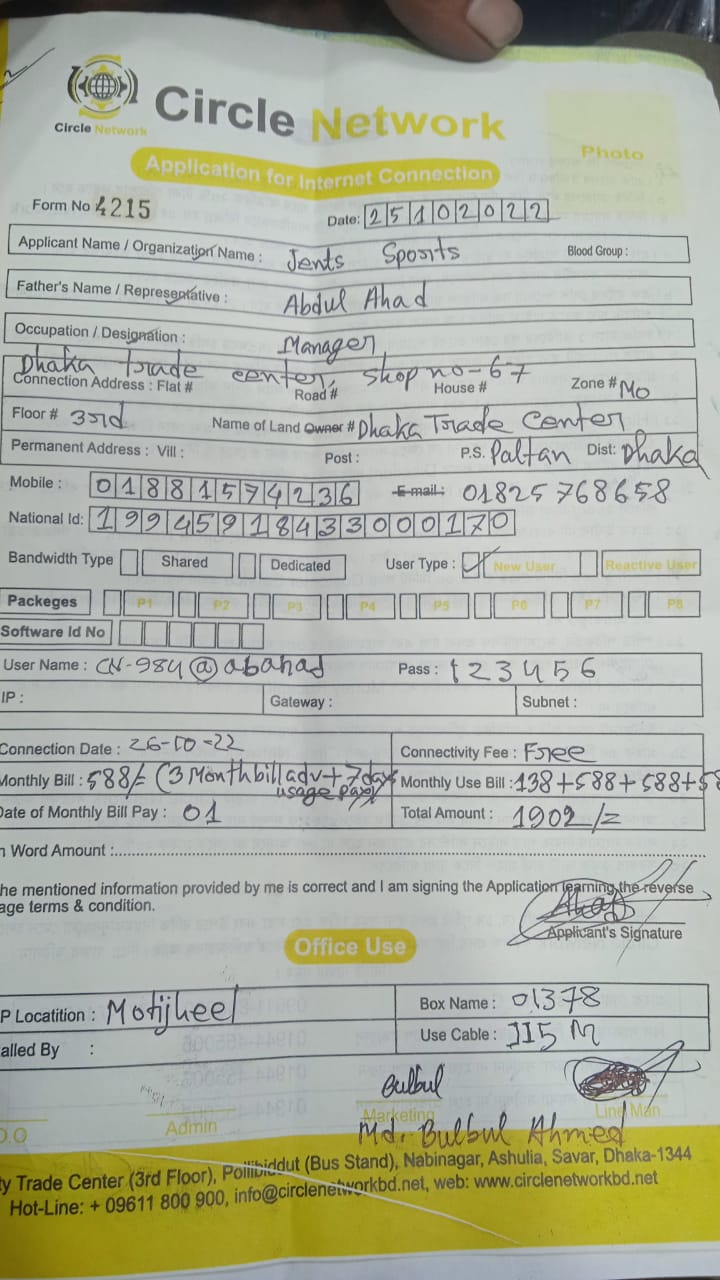 Circle Network
Circle Network
Photo
Application for Internet Connection
Form No 4215
Date: 25102022
Applicant Name / Organization Name : Jents Sports
Blood Group :
Father's Name / Representative : Abdul Ahad
Occupation / Designation : Manager
Dhaka Trade center, Shop no-67
Connection Address : Flat # Road# House # Zone # Mo
Floor # 3rd Name of Land Owner # Dhaka Trade Center
Permanent Address : Vill : Post : P.S. Paltan Dist: Dhaka
Mobile : 01881574236 E-mail : 01825768658
National Id: 19945918433000170
Bandwidth Type Shared Dedicated User Type : New User Reactive User
Packeges P1 P2 P3 P4 P5 P6 P7 P8
Software Id No
User Name : CN-984@abahad Pass : 123456
IP : Gateway : Subnet :
Connection Date : 26-10-22 Connectivity Fee : Free
Monthly Bill : 588/= (3 Month bill adv + 7 days usage pay) Monthly Use Bill : 138+588+588+58
Date of Monthly Bill Pay : 01 Total Amount : 1902/=
n Word Amount :
he mentioned information provided by me is correct and I am signing the Application learning the reverse
age terms & condition.
Applicant's Signature
Office Use
P Locatition : Motijheel Box Name : 01378
alled By : Use Cable : 115 M
Bulbul
D.O Admin Marketing Line Man
Md. Bulbul Ahmed
ty Trade Center (3rd Floor), Pollibiddut (Bus Stand), Nabinagar, Ashulia, Savar, Dhaka-1344
Hot-Line: + 09611 800 900, info@circlenetworkbd.net, web: www.circlenetworkbd.net